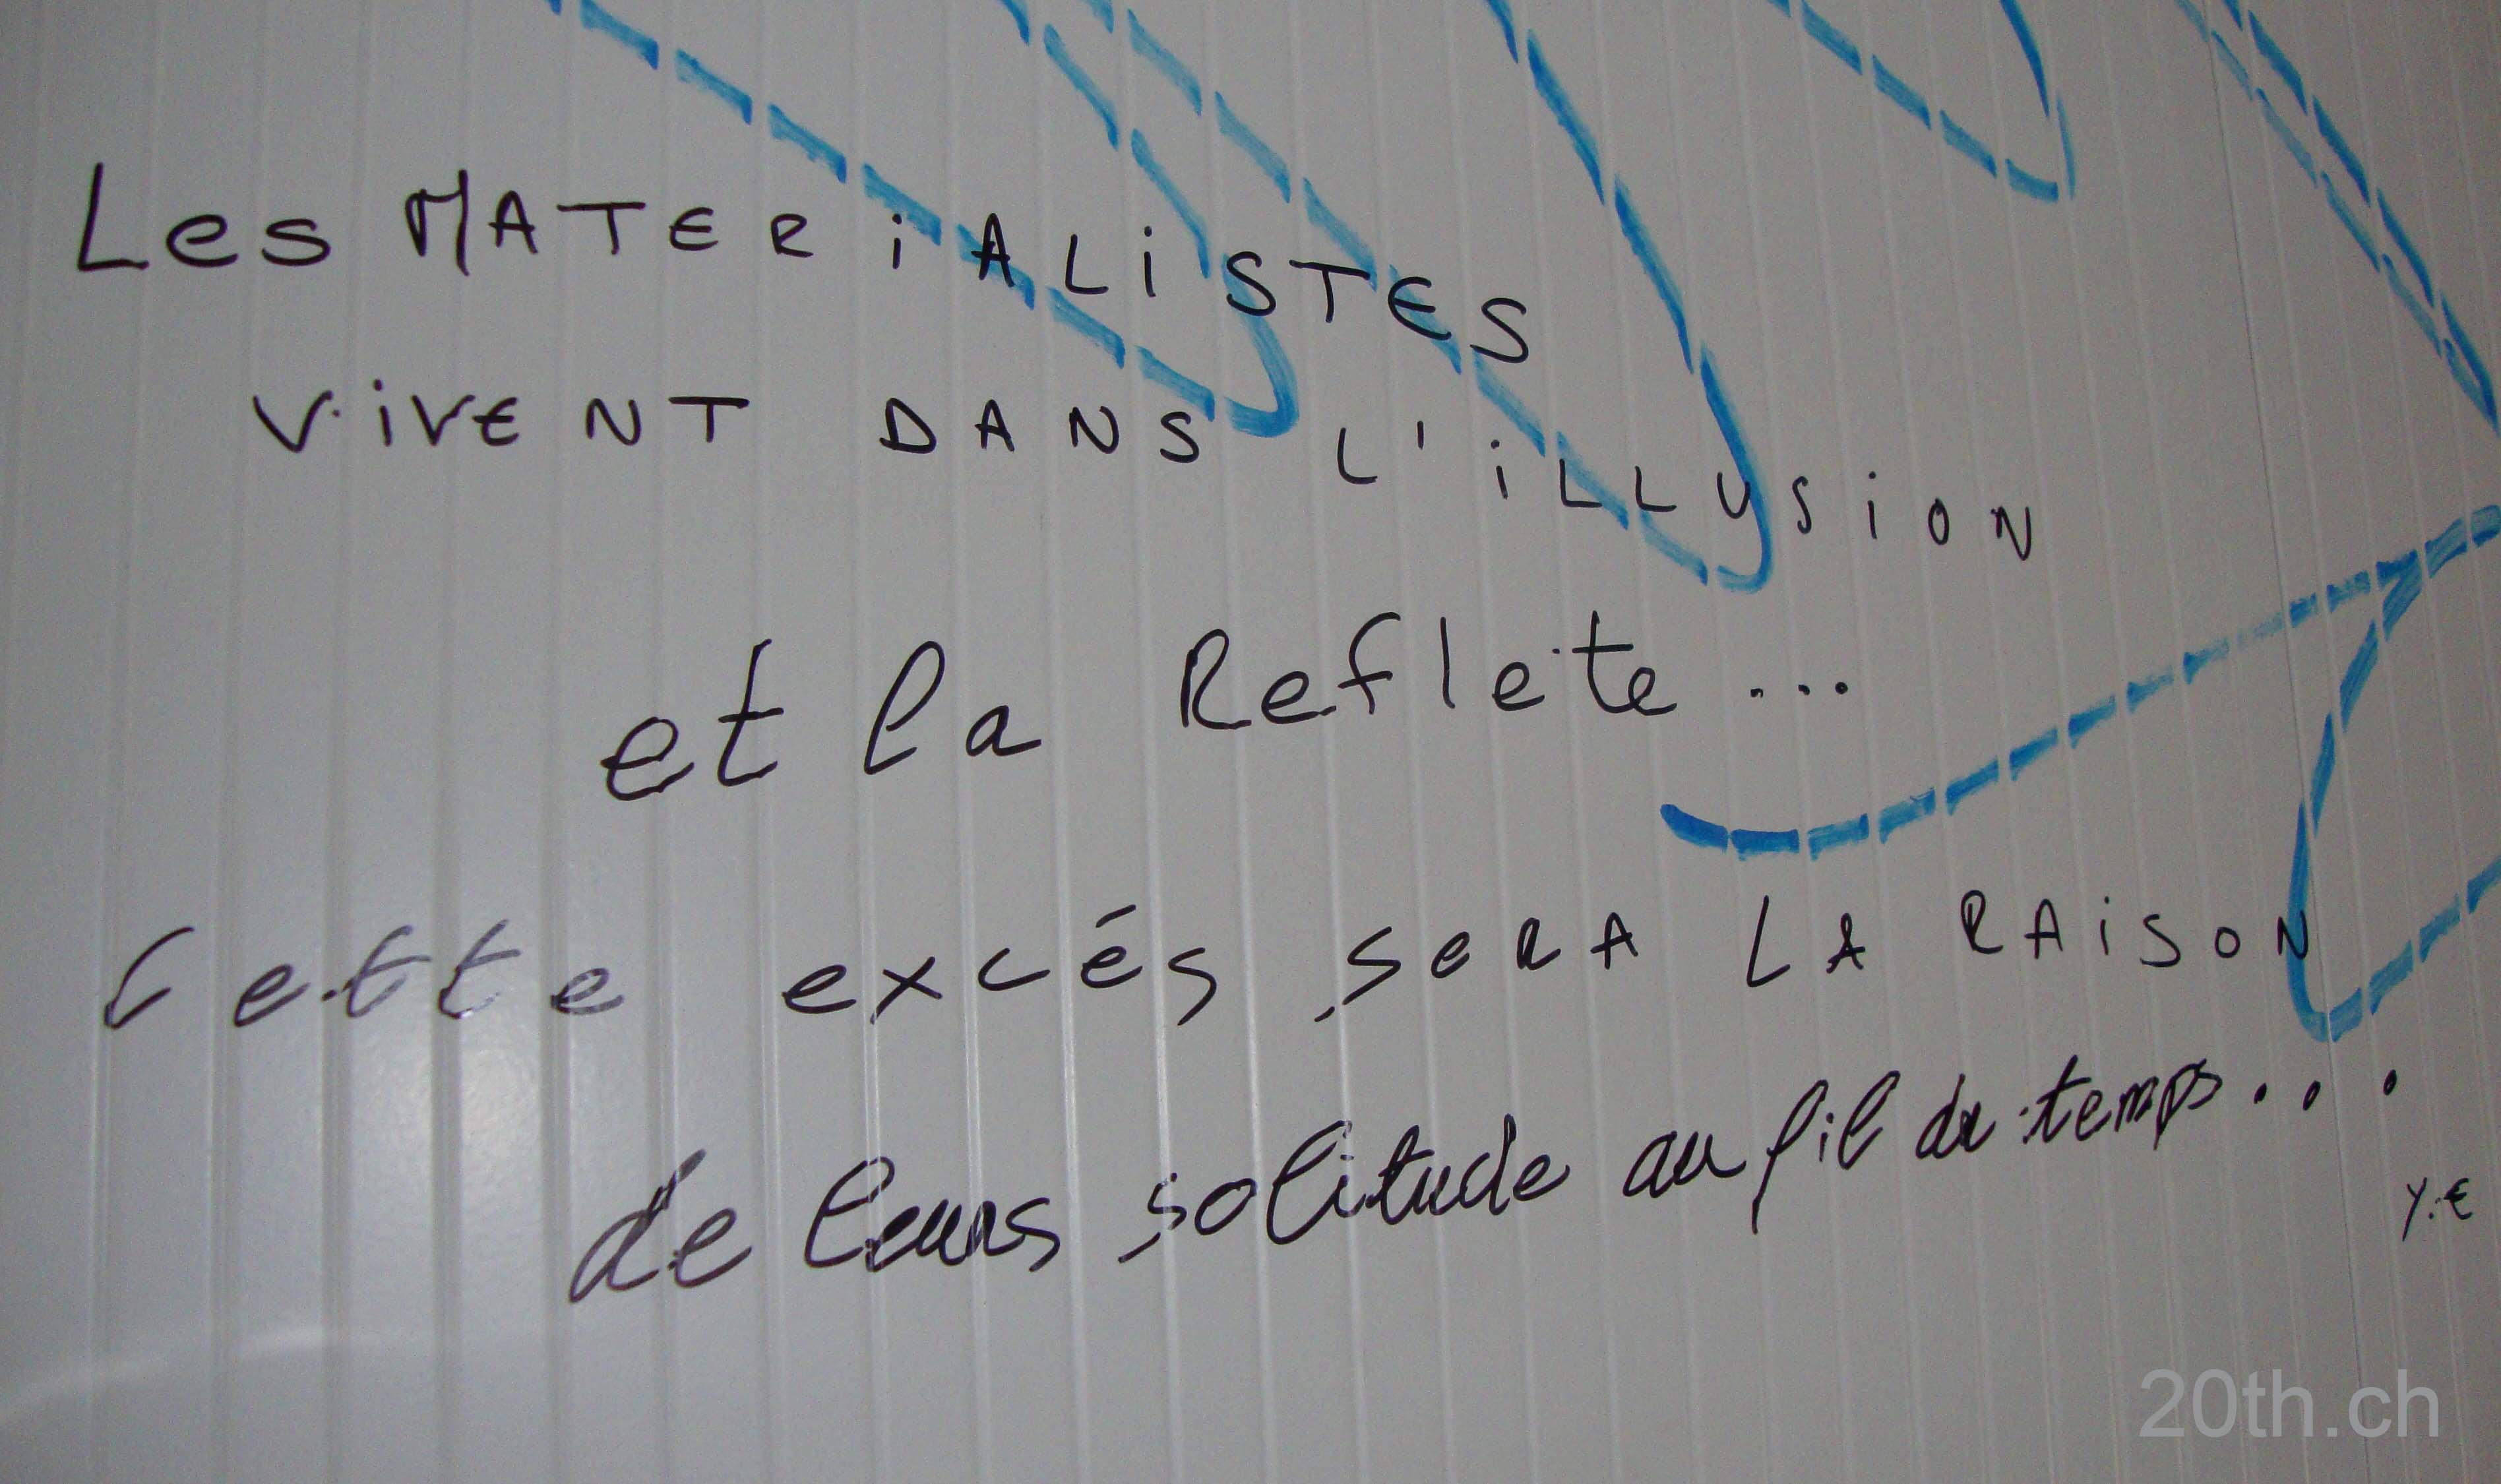 Les MATERiALiSTES
ViVENT DANS L'iLLUSiON
et la Reflete ...
Cette excés sera LA RAiSON
de leurs solitude au fil du temps...
Y.E
20th.ch